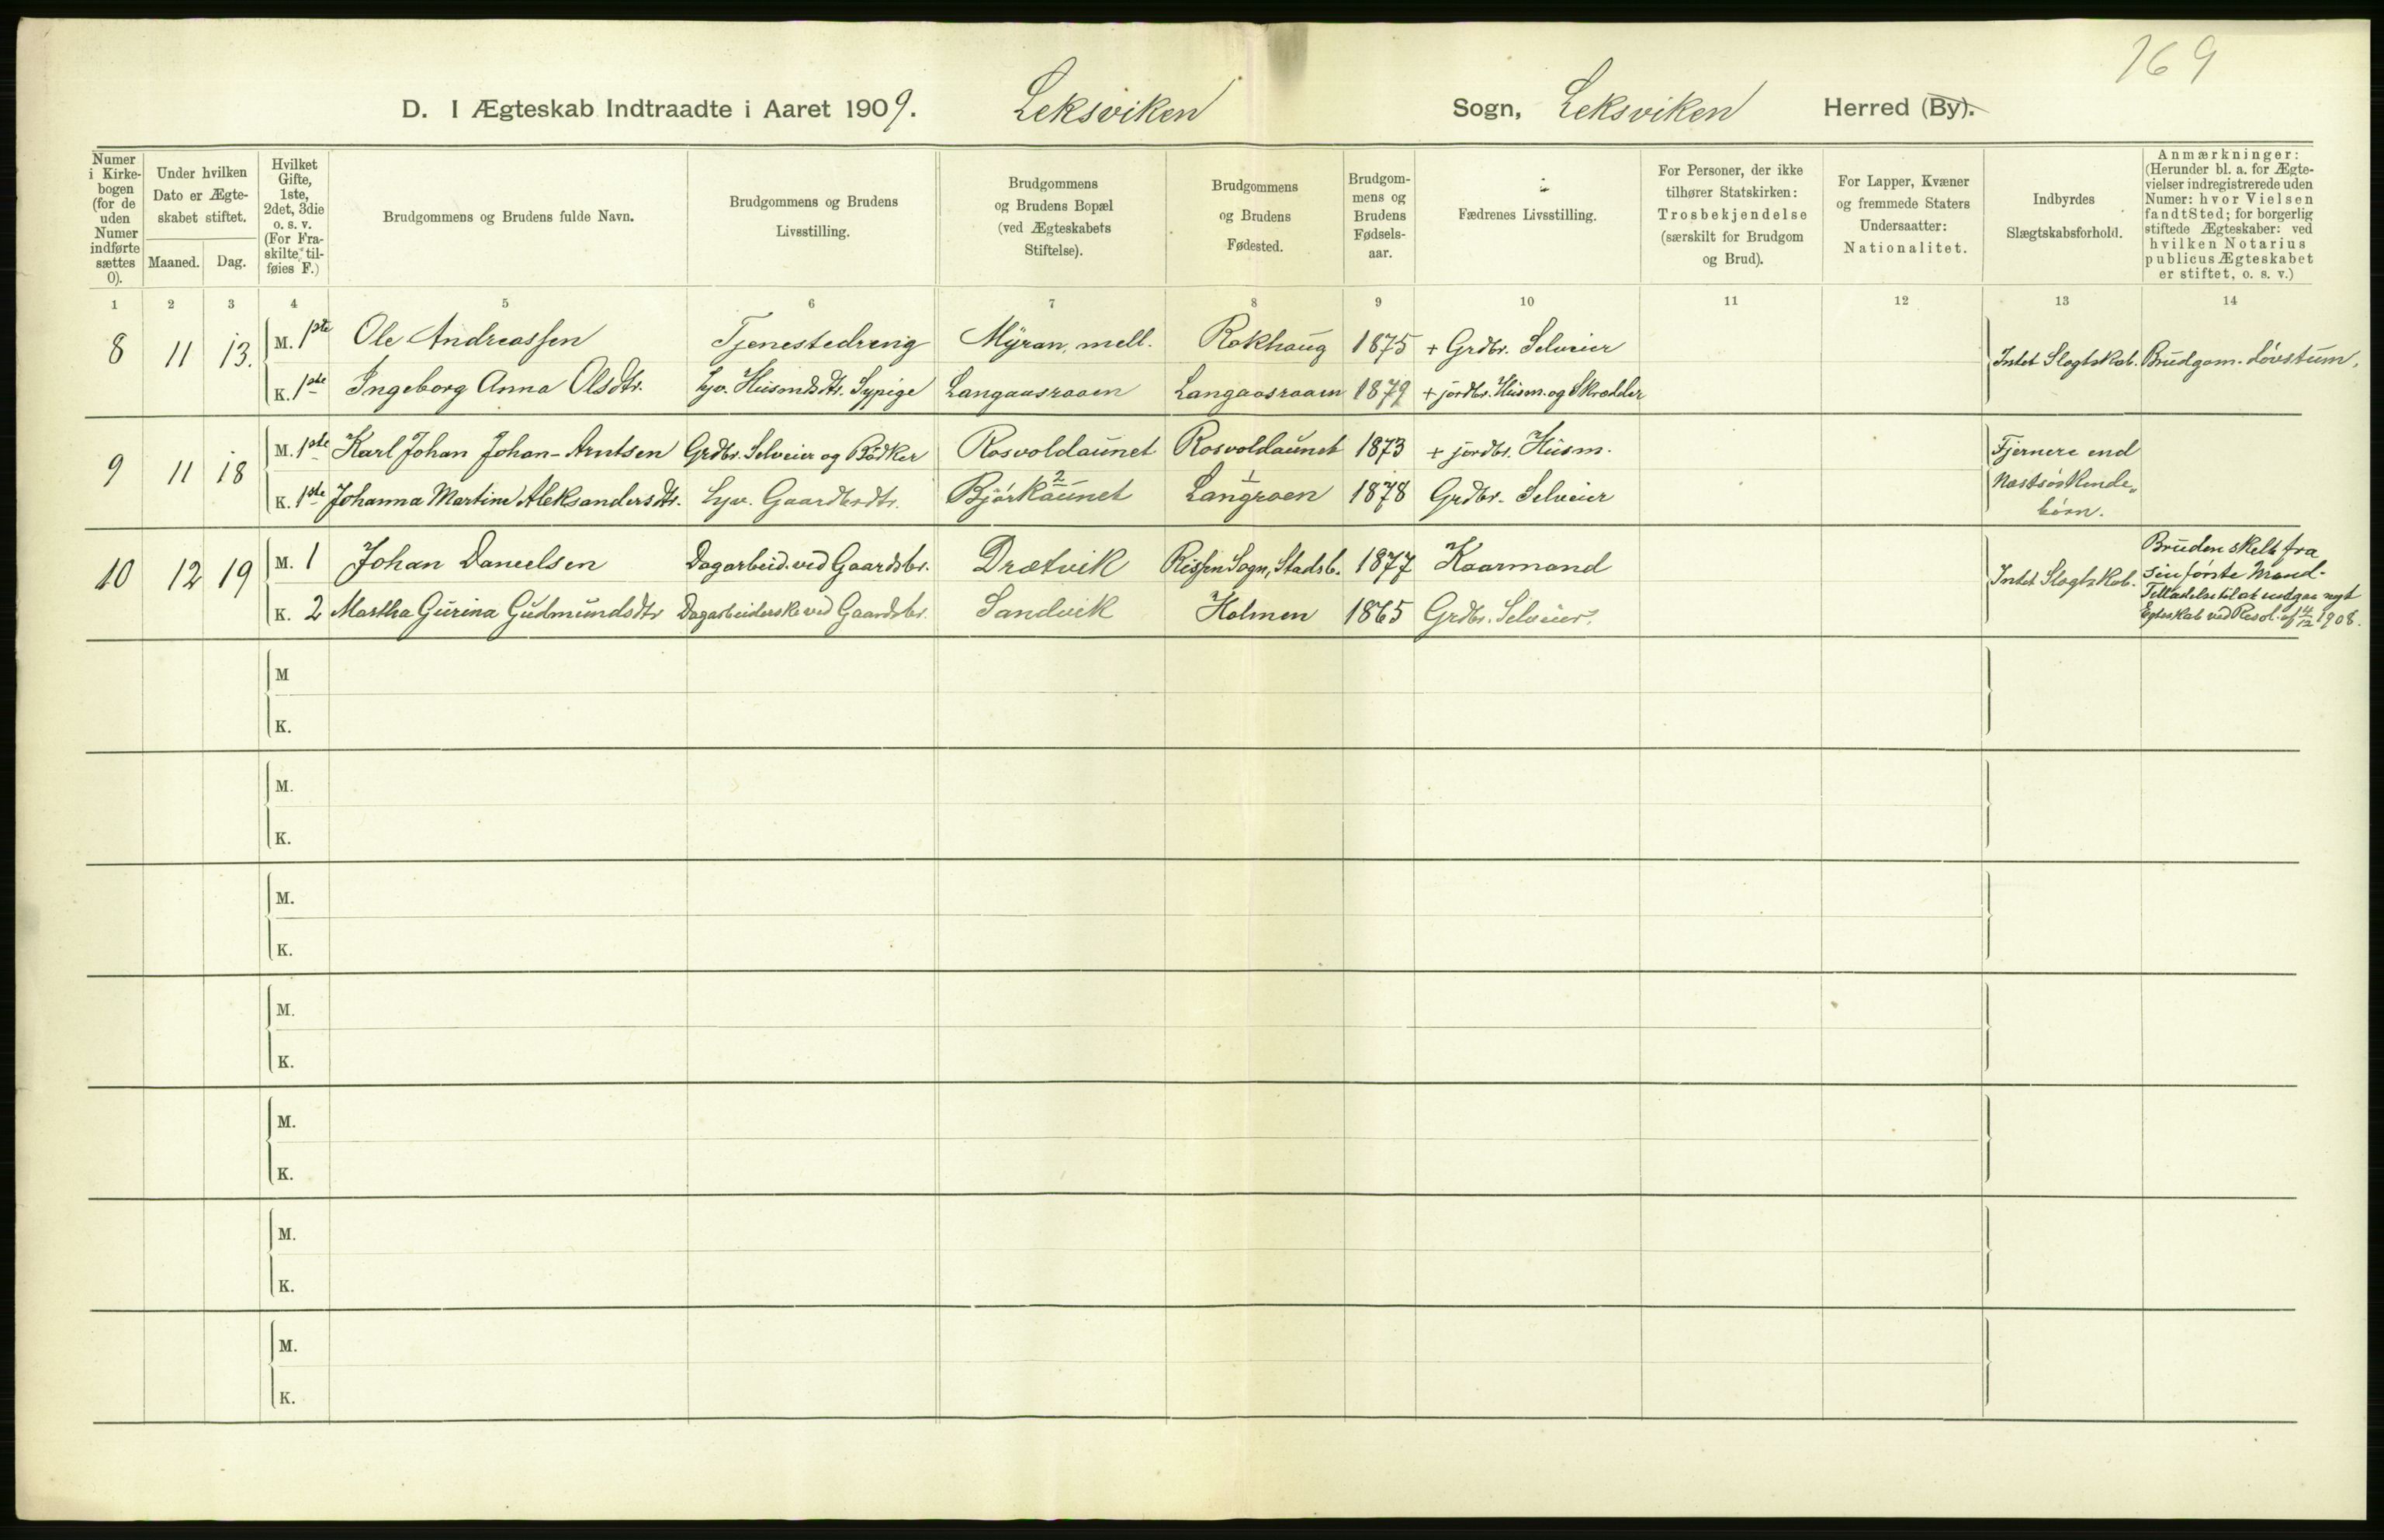 169
D. I Ægteskab Indtraadte i Aaret 1909. Leksviken Sogn, Leksviken Herred (By).
Numer i Kirkebogen (for de uden Numer indførte sættes 0).
Under hvilken Dato er Ægteskabet stiftet.
Maaned. Dag.
Hvilket Gifte, 1ste, 2det, 3die o. s. v. (For Fraskilte tilføies F.)
Brudgommens og Brudens fulde Navn.
Brudgommens og Brudens Livsstilling.
Brudgommens og Brudens Bopæl (ved Ægteskabets Stiftelse).
Brudgommens og Brudens Fødested.
Brudgommens og Brudens Fødselsaar.
Fædrenes Livsstilling.
For Personer, der ikke tilhører Statskirken: Trosbekjendelse (særskilt for Brudgom og Brud).
For Lapper, Kvæner og fremmede Staters Undersaatter: Nationalitet.
Indbyrdes Slægtskabsforhold.
Anmærkninger: (Herunder bl. a. for Ægtevielser indregistrerede uden Numer: hvor Vielsen fandt Sted; for borgerlig stiftede Ægteskaber: ved hvilken Notarius publicus Ægteskabet er stiftet, o. s. v.)
1 2 3 4 5 6 7 8 9 10 11 12 13 14
8 11 13. M. 1ste Ole Andreassen Tjenestedreng Myran, mell. Rokhaug 1875 + Grdbr. Selveier Intet Slægtskab. Brudgom. døvstum.
K. 1ste Ingeborg Anna Olsdtr. hjv. Husmdsdtr. Sypige Langaasraaen Langaasraaen 1879 + jordbr. Husm. og Skrædder
9 11 18 M. 1ste Karl Johan Johan-Arntsen Grdbr. Selveier og Bødker Rosvoldaunet Rosvoldaunet 1873 + jordbr. Husm. Fjernere end
K. 1ste Johanna Martine Aleksandersdtr. hjv. Gaardbrdtr. Bjørkaunet Langroen 1878 Grdbr. Selveier Næstsøskende-
børn.
10 12 19 M. 1 Johan Danielsen Dagarbeid. ved Gaardsbr. Drætvik Rissen Sogn, Stadsb. 1877 Kaarmand Intet Slægtskab. Bruden skilt fra
sin første Mand.
K. 2 Martha Gurina Gudmundsdtr Dagarbeiderske ved Gaardsbr. Sandvik Holmen 1865 Grdbr. Selveier. Tilladelse til at indgaa nyt
Egteskab ved Resol. af 4/12 1908.
M
K.
M.
K.
M.
K.
M.
K.
M.
K.
M.
K.
M.
K.